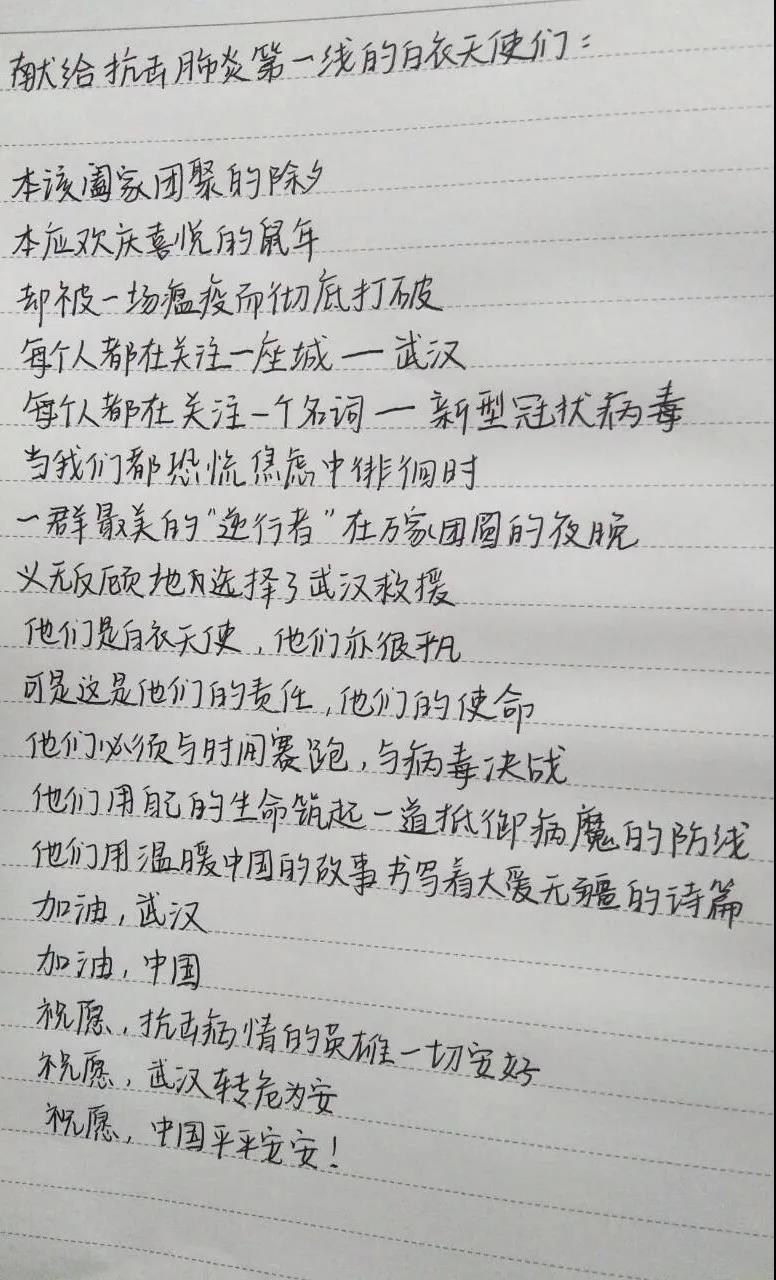 献给抗击肺炎第一线的白衣天使们：
本该阖家团聚的除夕
本应欢庆喜悦的鼠年
却被一场瘟疫而彻底打破
每个人都在关注一座城一武汉
每个人都在关注一个名词一新型冠状病毒
当我们都恐慌焦虑中徘徊时
一群最美的“逆行者”在万家团圆的夜晚
义无反顾地选择了武汉救援
他们是白衣天使，他们亦很平凡
可是这是他们的责任，他们的使命
他们必须与时间赛跑，与病毒决战
他们用自己的生命筑起一道抵御病魔的防线
他们用温暖中国的故事书写着大爱无疆的诗篇
加油，武汉
加油，中国
祝愿，抗击病情的英雄一切安好
祝愿，武汉转危为安
祝愿，中国平平安安！